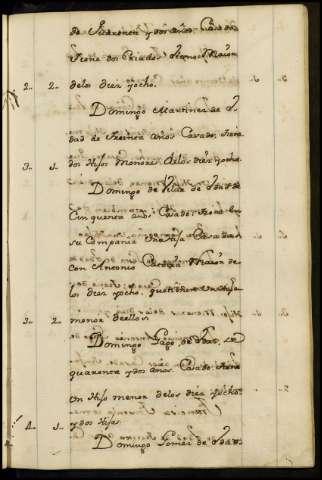 de Quarenta y dos años Casado
tiene dos Criados
2.. 2.. delos diez yocho.
Domingo Martinez de E
dad de treinta años Casado, tiene
3.. 1.. dos Hijos menores delos diez yocho
Domingo de de Edad de
Cinquenta años Casado tiene En
su Compania Una hija Casada
con Antonio maior de
los diez yocho, que tiene un hijo
3.. 2.. menor deellos
Domingo Lago de Edad de
quarenta y dos años Casado tiene
Un Hijo menor delos diez yocho
4.. 1.. y dos Hijas
Domingo Gomez de Edad